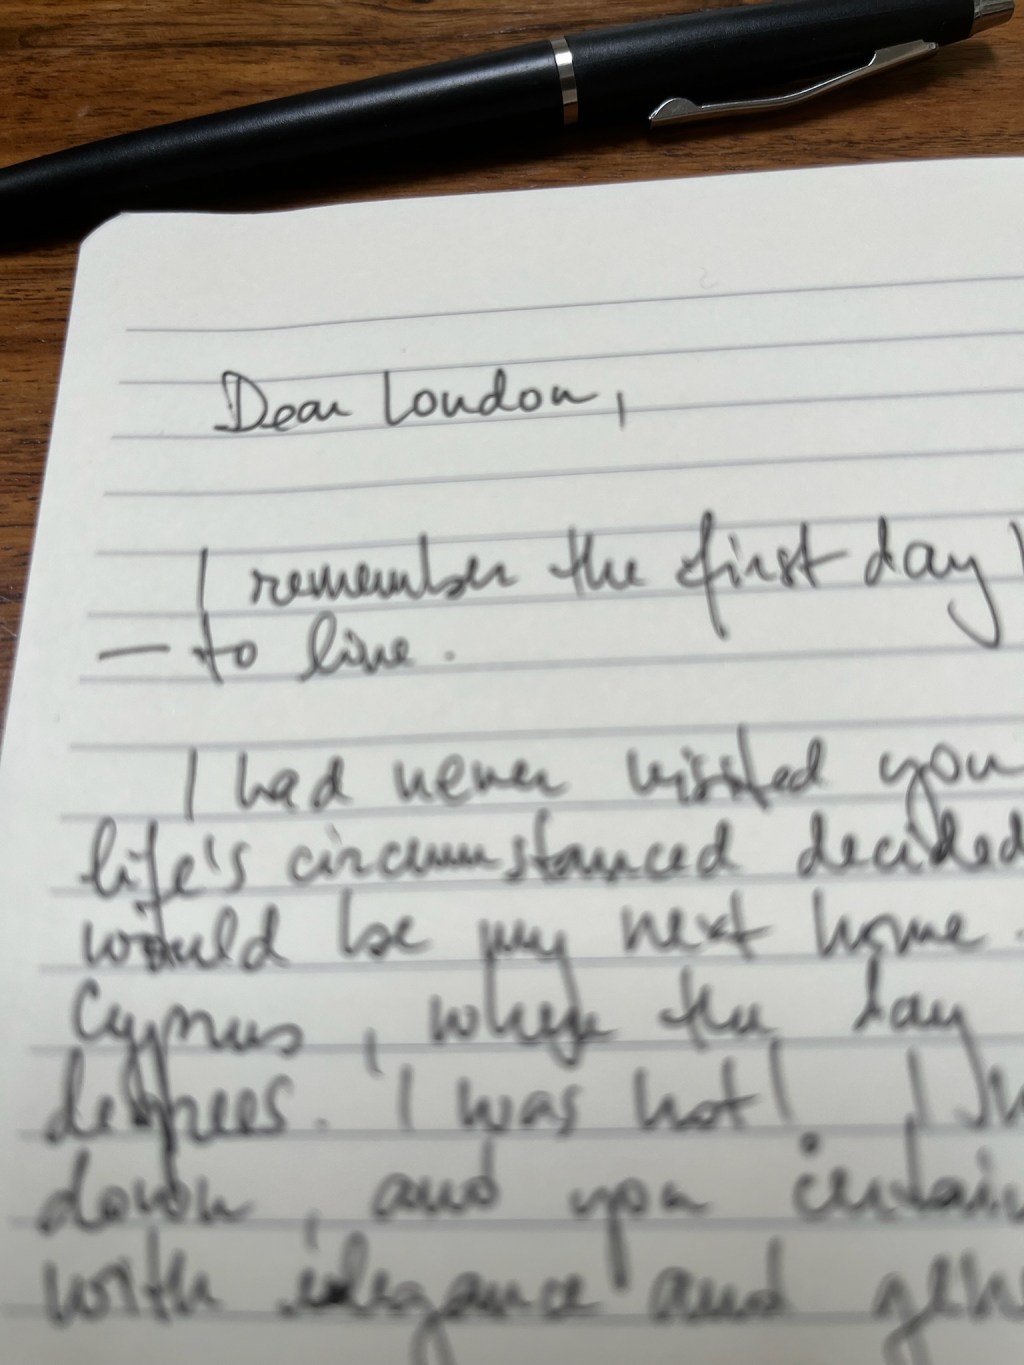 Dear London,
I remember the first day I
— to live.
I had never visited you
life's circumstanced decided
would be my next home.
Cyprus, where the day
degrees. I was hot! I
down, and you certain
with elegance and